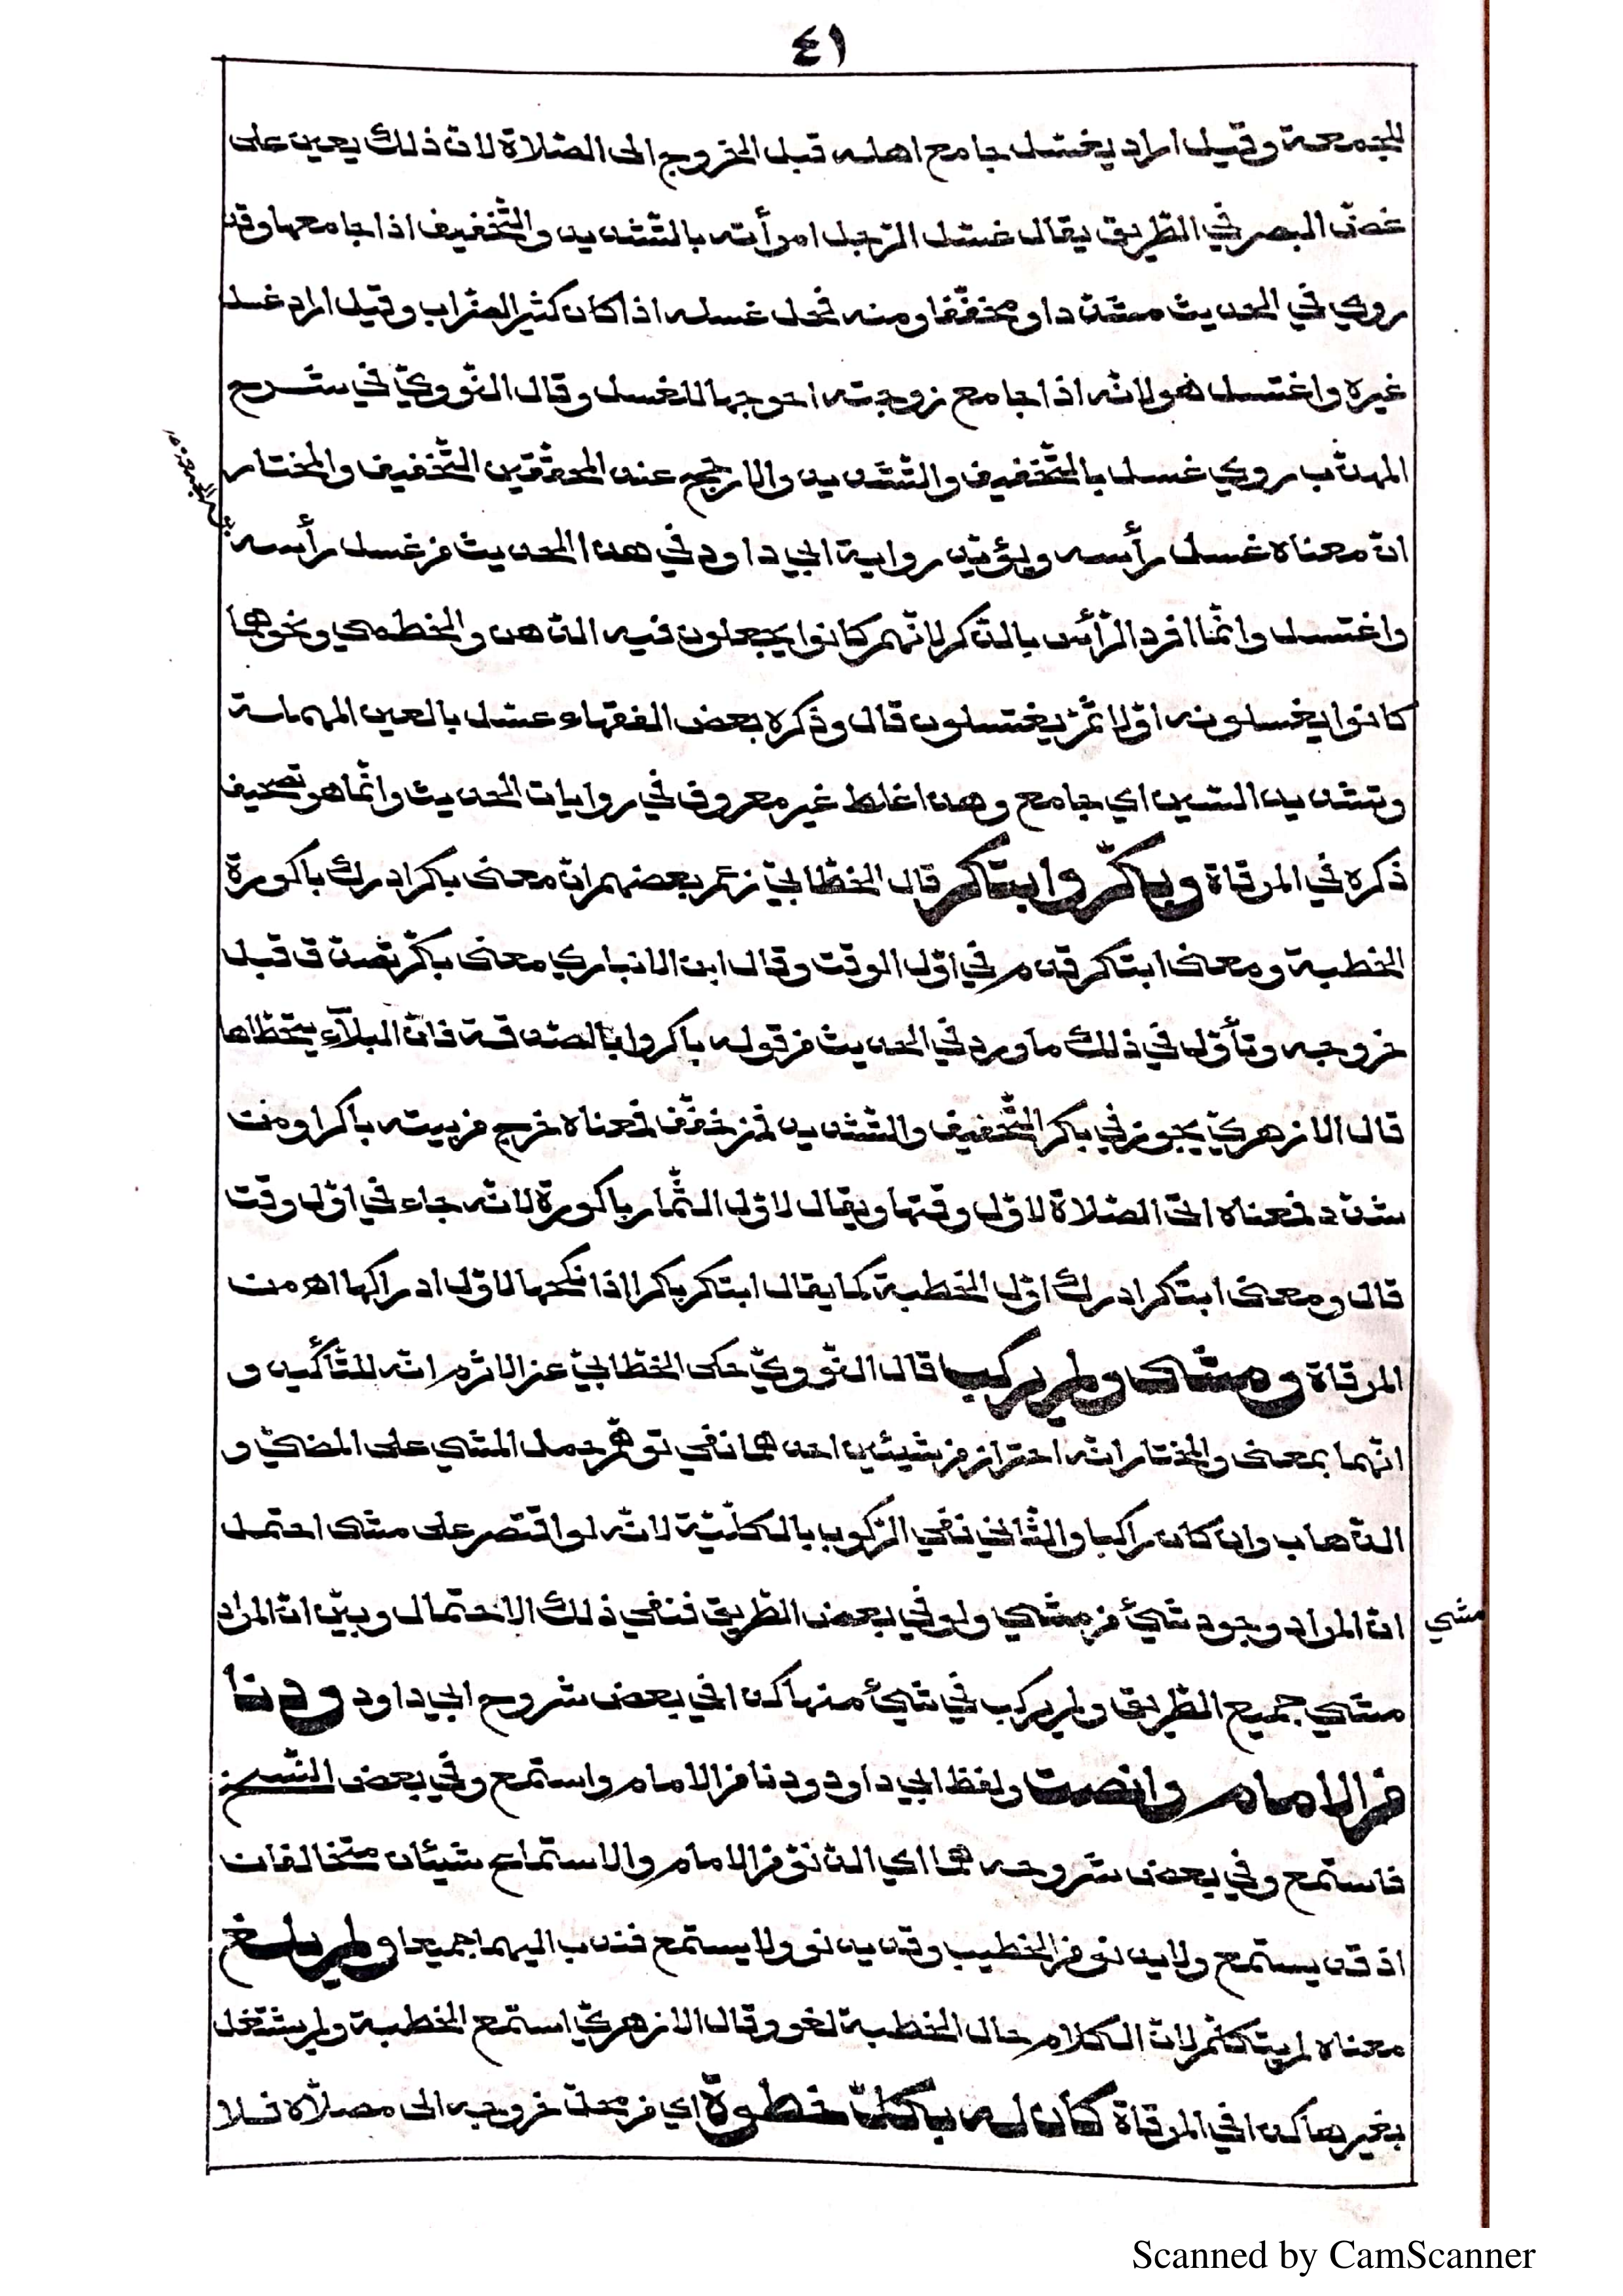 ٤١
للجمعة وقيل اراد يغسّل جامع اهله قبل الخروج الى الصّلاة لانّ ذلك يعين على
غضّ البصر في الطّريق يقال غسّل الرّجل امرأته بالتّشديد والتّخفيف اذا جامعها وقد
روي في الحديث مشدّدا ومخفّفا ومنه فحل غسله اذا كان كثير الضّراب وقيل اراد غسل
غيره واغتسل هو لانّه اذا جامع زوجته احوجها للغسل وقال النّوويّ في شرح
المهذّب روي غسل بالتّخفيف والتّشديد والارجح عند المحقّقين التّخفيف والمختار
انّ معناه غسل رأسه ويؤيّد رواية ابي داود في هذا الحديث من غسل رأسه
يوم الجمعة
واغتسل وانّما افرد الرّأس بالذّكر لانّهم كانوا يجعلون فيه الدّهن والخطمي ونحوهما
كانوا يغسلونه اوّلا ثمّ يغتسلون قال وذكره بعض الفقهاء عسّل بالعين المهملة
وتشديد السّين اي جامع وهذا غلط غير معروف في روايات الحديث وانّما هو تصحيف
ذكره في المرقاة وبكّر وابتكر قال الخطّابيّ زعم بعضهم انّ معنى بكر ادرك باكورة
الخطبة ومعنى ابتكر قدم في اوّل الوقت وقال ابن الانباري معنى بكّر تصدّق قبل
خروجه وتأوّل في ذلك ما ورد في الحديث من قوله باكروا بالصّدقة فانّ البلآء لا يتخطّاها
قال الازهريّ يجوز في بكر التّخفيف والتّشديد فمن خفّف فمعناه خرج من بيته باكرا ومن
شدّد فمعناه اتى الصّلاة لاوّل وقتها ويقال لاوّل الثّمار باكورة لانّه جاء في اوّل وقت
قال ومعنى ابتكر ادرك اوّل الخطبة كما يقال ابتكر بكرا اذا نكحها لاوّل ادراكها اه من
المرقاة ومشى ولم يركب قال النّوويّ حكى الخطّابيّ عن الاثرم انّه للتّأكيد و
انّهما بمعنى والمختار انّه احتراز من شيئين احدهما نفي توهّم حمل المشي على المضيّ و
الذّهاب وان كان راكبا والثّاني نفي الرّكوب بالكلّيّة لانّه لو اقتصر على مشى احتمل
انّ المراد وجود شيئ من مشي ولو في بعض الطّريق فنفي ذلك الاحتمال وبيّن انّ المراد
مشي
مشي جميع الطّريق ولم يركب في شيئ منها كذا في بعض شروح ابي داود ودنا
من الامام وانصت ولفظ ابي داود ودنا من الامام واستمع وفي بعض النّسخ
فاستمع وفي بعض شروحه هما اي الدّنوّ من الامام والاستماع شيئان متخالفان
اذ قد يستمع ولا يدنو من الخطيب وقد يدنو ولا يستمع فندب اليهما جميعا ولم يلغ
معناه لم يتكلّم لانّ الكلام حال الخطبة لغو وقال الازهريّ استمع الخطبة ولم يشتغل
بغيرها كذا في المرقاة كان له بكلّ خطوة اي من محلّ خروجه الى مصلّاه فلا
Scanned by CamScanner